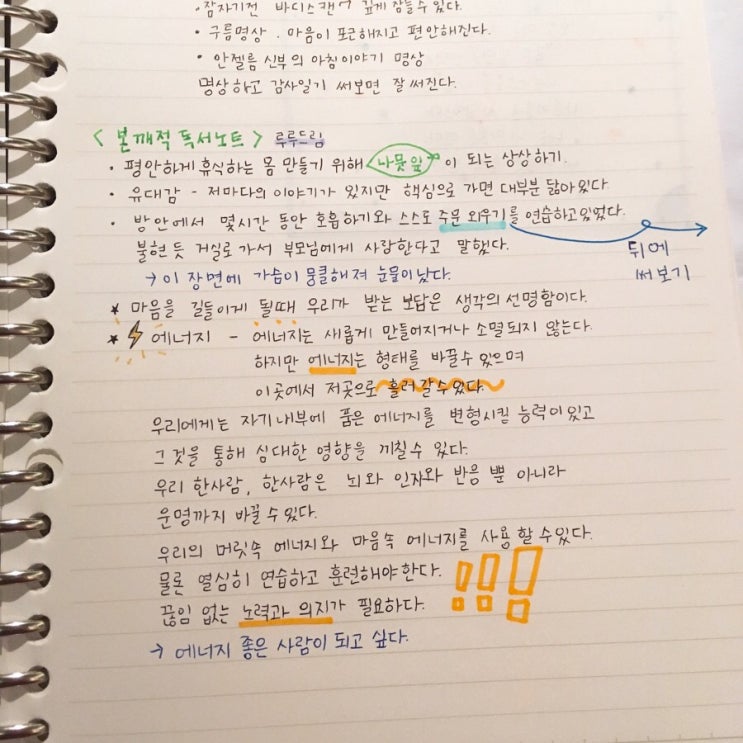 · 잠자기전 바디스캔 깊게 잠들 수 있다.
· 구름명상. 마음이 포근해지고 편안해진다.
· 안젤름 신부의 아침이야기 명상
명상하고 감사일기 써보면 잘 써진다.
<본깨적 독서노트> 루루드림
· 평안하게 휴식하는 몸 만들기 위해 나뭇잎이 되는 상상하기.
· 유대감 - 저마다의 이야기가 있지만 핵심으로 가면 대부분 닮아있다.
· 방안에서 몇시간 동안 호흡하기와 스스로 주문 외우기를 연습하고있었다.
불현듯 거실로 가서 부모님에게 사랑한다고 말했다.
뒤에
써보기
→ 이 장면에 가슴이 뭉클해져 눈물이 났다.
★ 마음을 길들이게 될때 우리가 받는 보답은 생각의 선명함이다.
★ ⚡ 에너지 - 에너지는 새롭게 만들어지거나 소멸되지 않는다.
하지만 에너지는 형태를 바꿀수 있으며
이곳에서 저곳으로 흘러갈수있다.
우리에게는 자기내부에 품은 에너지를 변형시킬 능력이 있고
그것을 통해 심대한 영향을 끼칠 수 있다.
우리 한사람, 한사람은 뇌와 인자와 반응 뿐 아니라
운명까지 바꿀 수 있다.
우리의 머릿속 에너지와 마음속 에너지를 사용할 수 있다.
물론 열심히 연습하고 훈련해야한다.
끊임 없는 노력과 의지가 필요하다. !!!
→ 에너지 좋은 사람이 되고 싶다.